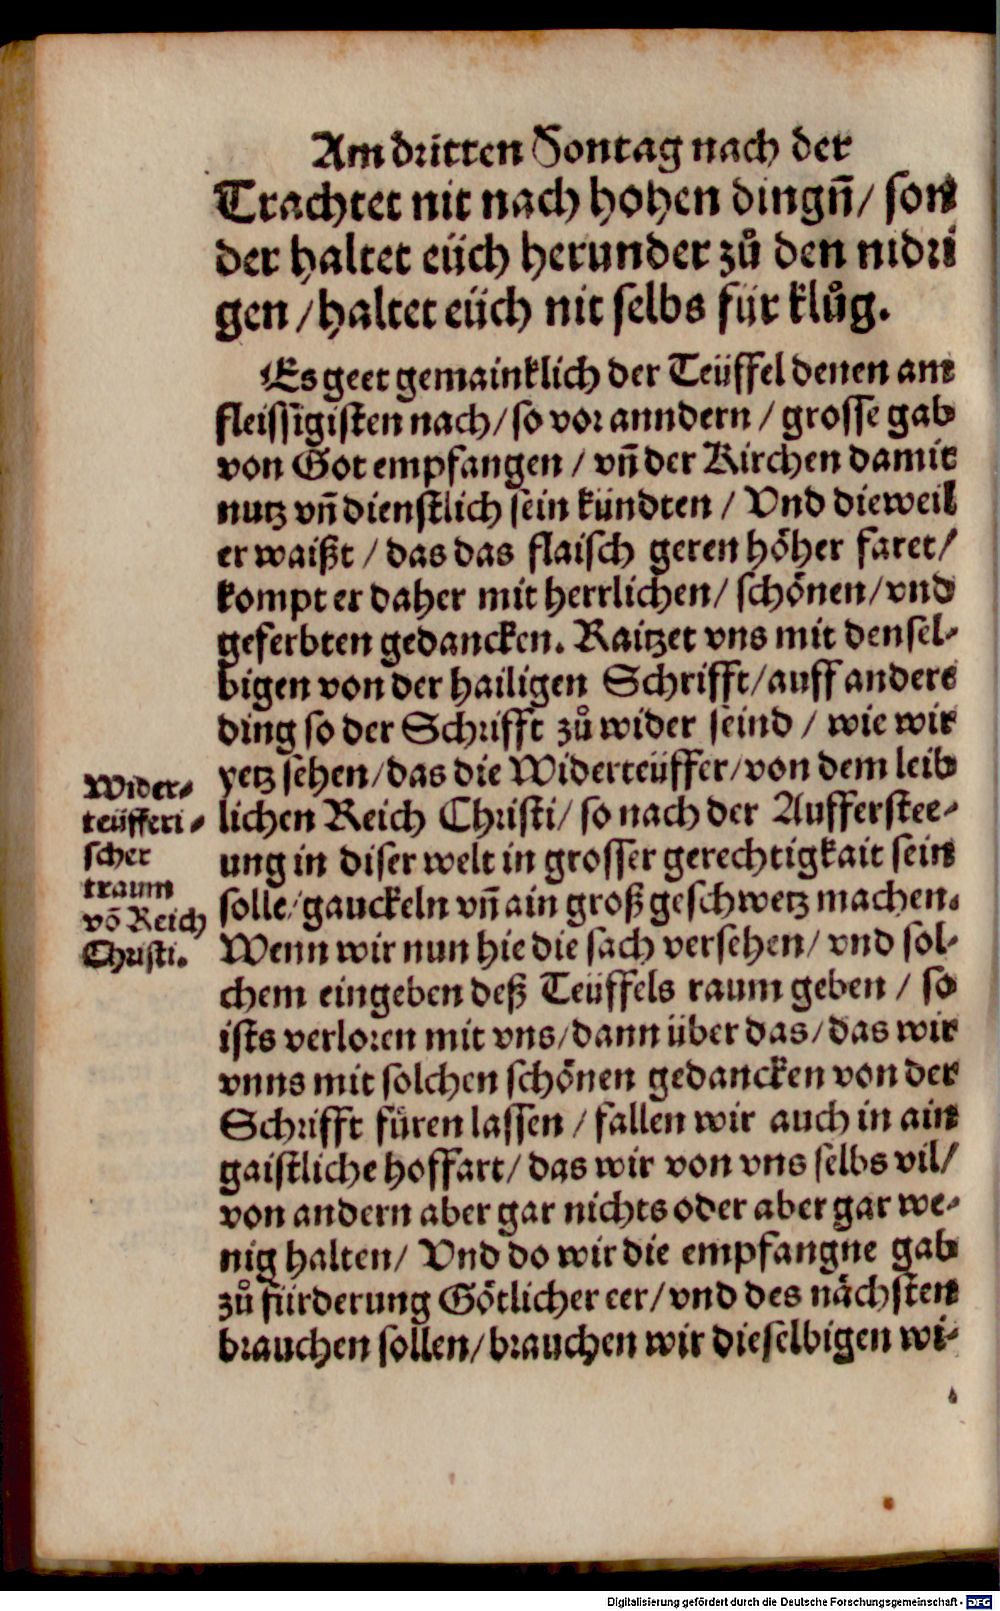 Am dritten Sontag nach der
Trachtet nit nach hohen dingñ / son
der haltet eüch herunder zů den nidri
gen / haltet eüch nit selbs für klůg.
Es geet gemainklich der Teüffel denen am
fleissigisten nach / so vor anndern / grosse gab
von Got empfangen / vñ der Kirchen damit
nutz vñ dienstlich sein kündten / Vnd dieweil
er waißt / das das flaisch geren höher faret /
kompt er daher mit herrlichen / schönen / vnd
geferbten gedancken. Raitzet vns mit densel-
bigen von der hailigen Schrifft / auff anders
ding so der Schrifft zů wider seind / wie wir
yetz sehen / das die Widerteüffer / von dem leib
lichen Reich Christi / so nach der Aufferstee-
ung in diser welt in grosser gerechtigkait sein
solle / gauckeln vñ ain groß geschwetz machen.
Wenn wir nun hie die sach versehen / vnd sol-
chem eingeben deß Teüffels raum geben / so
ists verloren mit vns / dann über das / das wir
vnns mit solchen schönen gedancken von der
Schrifft füren lassen / fallen wir auch in ain
gaistliche hoffart / das wir von vns selbs vil /
von andern aber gar nichts oder aber gar we-
nig halten / Vnd do wir die empfangne gab
zů fürderung Götlicher eer / vnd des nächsten
brauchen sollen / brauchen wir dieselbigen wi-
Wider-
teüfferi-
scher
traum
võ Reich
Christi.
Digitalisierung gefördert durch die Deutsche Forschungsgemeinschaft - DFG